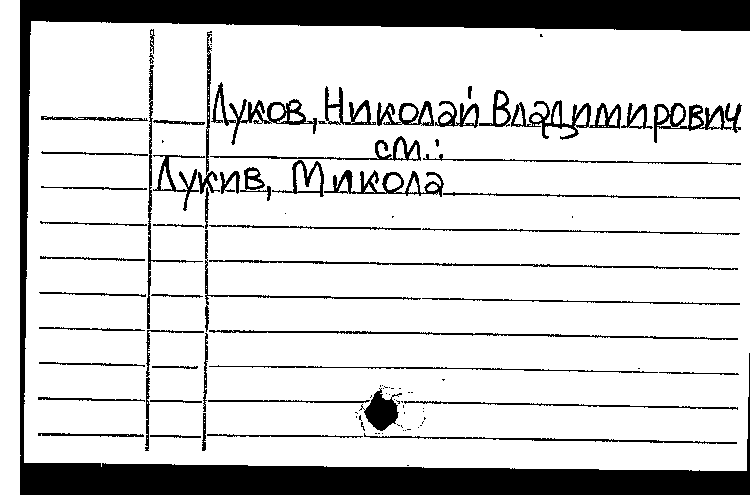 Луков, Николай Владимирович
см.:
Лукив, Микола